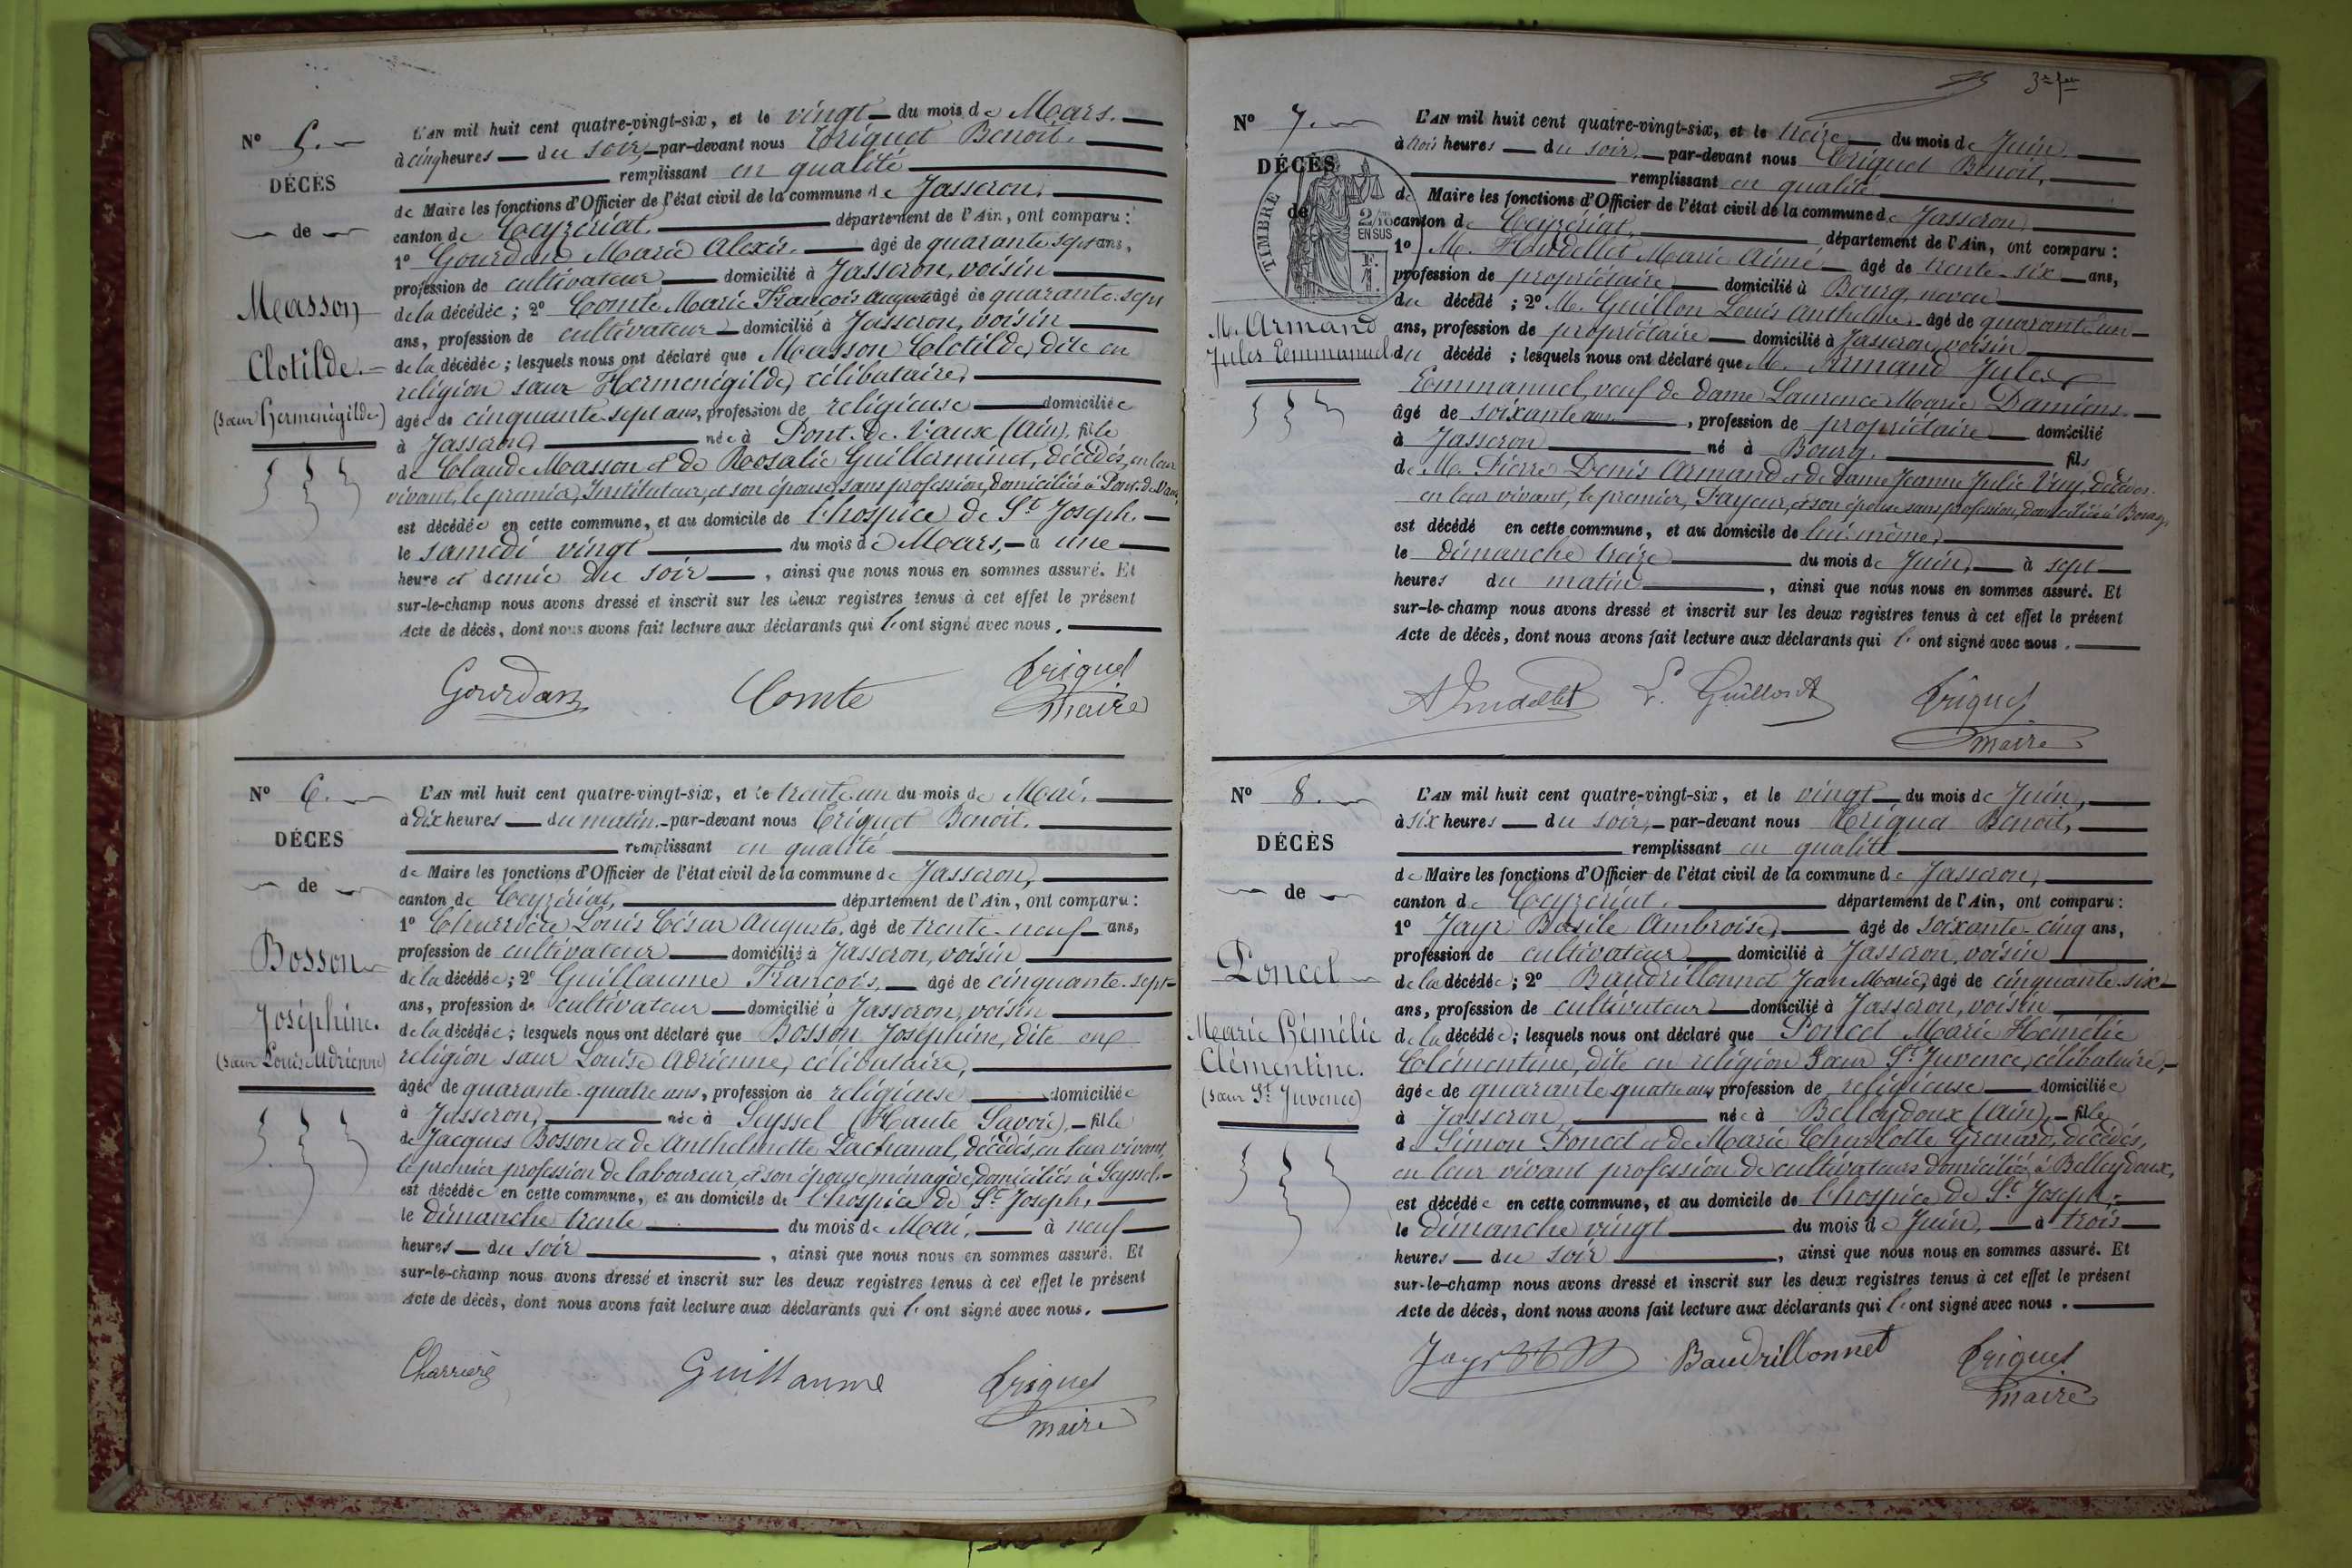 Nº 5.
DÉCÈS
de
Masson
Clotilde.
(Sœur Herménégilde)
L'AN mil huit cent quatre-vingt-six, et le vingt du mois de Mars.
à cinq heures du soir, par-devant nous Triquet Benoit.
remplissant en qualité
de Maire les fonctions d'Officier de l'état civil de la commune de Jasseron,
canton de Ceyzériat. département de l'Ain, ont comparu :
1º Gourdan Marie Alexis. âgé de quarante sept ans,
profession de cultivateur domicilié à Jasseron, voisin
de la décédée ; 2º Comte Marie François Auguste âgé de quarante-sept
ans, profession de cultivateur domicilié à Jasseron, voisin
de la décédée ; lesquels nous ont déclaré que Masson Clotilde, dite en
religion sœur Herménégilde, célibataire,
âgée de cinquante-sept ans, profession de religieuse domiciliée
à Jasseron, née à Pont-de-Vaux (Ain), fille
de Claude Masson et de Rosalie Guillerminet, décédés, en leur
vivant, le premier, Instituteur, et son épouse, sans profession, domiciliés à Pont-de-Vaux,
est décédée en cette commune, et au domicile de l'hospice de St Joseph,
le samedi vingt du mois de Mars, à une
heure et demie du soir, ainsi que nous nous en sommes assuré. Et
sur-le-champ nous avons dressé et inscrit sur les deux registres tenus à cet effet le présent
Acte de décès, dont nous avons fait lecture aux déclarants qui l'ont signé avec nous.
Gourdan Comte Triquet
maire
Nº 6.
DÉCÈS
de
Bosson
Joséphine.
(Sœur Louise Adrienne)
L'AN mil huit cent quatre-vingt-six, et le trente-un du mois de Mai,
à dix heures du matin, par-devant nous Triquet Benoit.
remplissant en qualité
de Maire les fonctions d'Officier de l'état civil de la commune de Jasseron,
canton de Ceyzériat, département de l'Ain, ont comparu :
1º Charrière Louis César Auguste, âgé de trente-neuf ans,
profession de cultivateur domicilié à Jasseron, voisin
de la décédée ; 2º Guillaume François, âgé de cinquante-sept
ans, profession de cultivateur domicilié à Jasseron, voisin
de la décédée ; lesquels nous ont déclaré que Bosson Joséphine, dite en
religion sœur Louise Adrienne, célibataire,
âgée de quarante-quatre ans, profession de religieuse domiciliée
à Jasseron, née à Seyssel (Haute Savoie), fille
de Jacques Bosson et de Anthelmette Lachanal, décédés, en leur vivant,
le premier profession de laboureur, et son épouse, ménagère, domiciliés à Seyssel,
est décédée en cette commune, et au domicile de l'hospice de St Joseph,
le dimanche trente du mois de Mai, à neuf
heures du soir, ainsi que nous nous en sommes assuré. Et
sur-le-champ nous avons dressé et inscrit sur les deux registres tenus à cet effet le présent
Acte de décès, dont nous avons fait lecture aux déclarants qui l'ont signé avec nous.
Charrière Guillaume Triquet
maire
Nº 7.
DÉCÈS
de
TIMBRE
2/10 EN SUS
M. Armand
Jules Emmanuel
L'AN mil huit cent quatre-vingt-six, et le treize du mois de Juin.
à trois heures du soir, par-devant nous Triquet Benoit,
remplissant en qualité
de Maire les fonctions d'Officier de l'état civil de la commune de Jasseron,
canton de Ceyzériat, département de l'Ain, ont comparu :
1º M. Hudellet Marie Aimé âgé de trente-six ans,
profession de propriétaire domicilié à Bourg, neveu
du décédé ; 2º M. Guillon Louis Anthelme âgé de quarante-un
ans, profession de propriétaire domicilié à Jasseron, voisin
du décédé ; lesquels nous ont déclaré que M. Armand Jules
Emmanuel, veuf de dame Laurence Marie Damiens.
âgé de soixante ans, profession de propriétaire domicilié
à Jasseron né à Bourg, fils
de M. Pierre Denis Armand et de dame Jeanne Julie Vuy, décédés
en leur vivant, le premier, Payeur, et son épouse sans profession, domiciliés à Bourg,
est décédé en cette commune, et au domicile de lui-même,
le dimanche treize du mois de Juin, à sept
heures du matin, ainsi que nous nous en sommes assuré. Et
sur-le-champ nous avons dressé et inscrit sur les deux registres tenus à cet effet le présent
Acte de décès, dont nous avons fait lecture aux déclarants qui l'ont signé avec nous.
A Hudellet L. Guillon Triquet
maire
Nº 8.
DÉCÈS
de
Poncet
Marie Hémélie
Clémentine.
(Sœur St Juvence)
L'AN mil huit cent quatre-vingt-six, et le vingt du mois de Juin,
à six heures du soir, par-devant nous Triquet Benoit,
remplissant en qualité
de Maire les fonctions d'Officier de l'état civil de la commune de Jasseron,
canton de Ceyzériat. département de l'Ain, ont comparu :
1º Jayr Basile Ambroise, âgé de soixante-cinq ans,
profession de cultivateur domicilié à Jasseron, voisin
de la décédée ; 2º Baudrillonnet Jean Marie, âgé de cinquante-six
ans, profession de cultivateur domicilié à Jasseron, voisin
de la décédée ; lesquels nous ont déclaré que Poncet Marie Hémélie
Clémentine, dite en religion Sœur St Juvence, célibataire,
âgée de quarante quatre ans, profession de religieuse domiciliée
à Jasseron, née à Belleydoux (Ain), fille
de Simon Poncet et de Marie Charlotte Grenard, décédés,
en leur vivant profession de cultivateurs domiciliés à Belleydoux,
est décédée en cette commune, et au domicile de l'hospice de St Joseph,
le dimanche vingt du mois de Juin, à trois
heures du soir, ainsi que nous nous en sommes assuré. Et
sur-le-champ nous avons dressé et inscrit sur les deux registres tenus à cet effet le présent
Acte de décès, dont nous avons fait lecture aux déclarants qui l'ont signé avec nous.
Jayr Baudrillonnet Triquet
maire